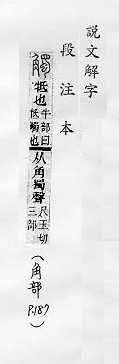 説文解字
段注本
觸
牴也牛部曰
牴觸也
从角蜀聲尺玉切
三部
(角部
P.187)